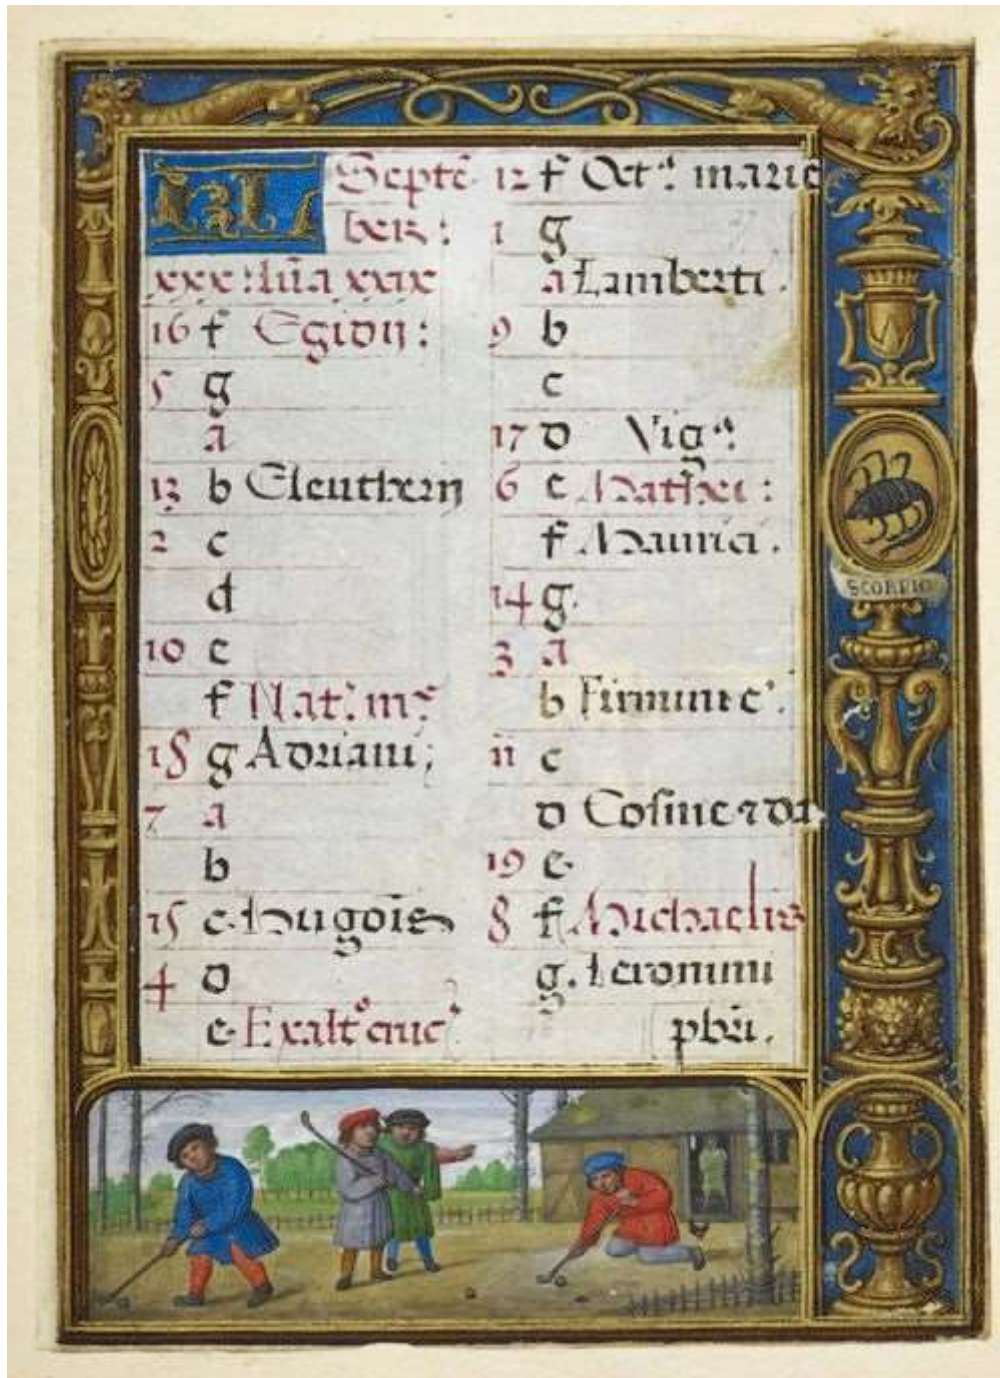 KL Septē
ber :
xxx : lūa xxix
16 f Egidii :
5 g
a
13 b Eleutherii
2 c
d
10 e
f Nat. m
18 g Adriani ;
7 a
b
15 c Hugōis
4 d
e Exalt° cruc
12 f Octª. marie
1 g
a Lamberti .
9 b
c
17 d Vigª.
6 e Mathei :
f Maurici .
14 g
3 a
b Firmini e
11 c
d Cosme ⁊ da
19 e
8 f Michaelis
g Ieronimi
pbri .
SCORPIO